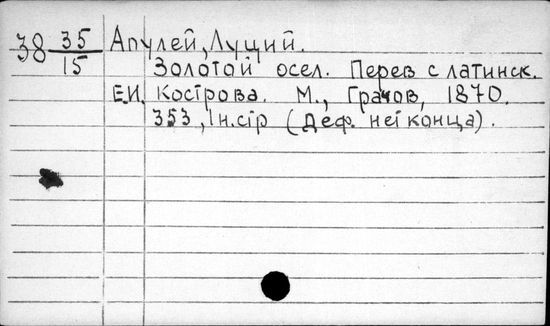 38 35/15 Апулей, Луций.
Золотой осел. Перев с латинск.
Е.И. Кострова. М., Грачов, 1870.
353, 1 н.стр (Деф. нет конца).